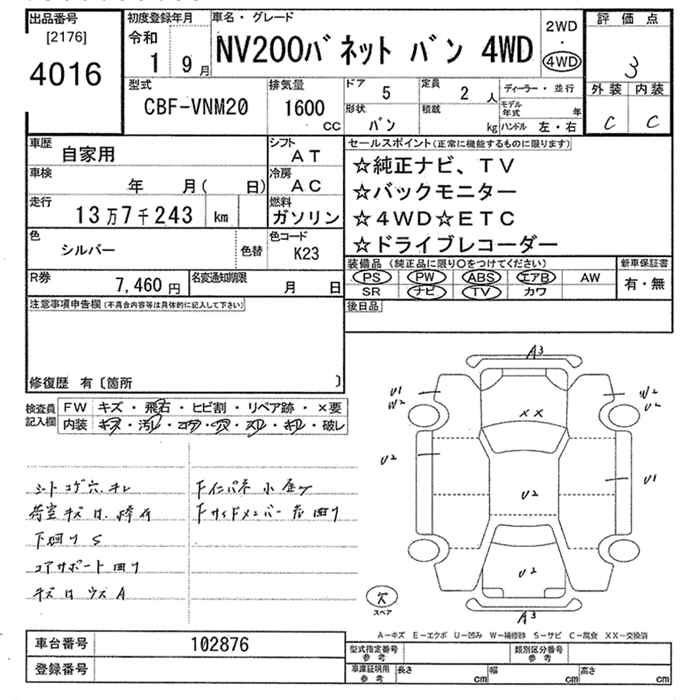 出品番号 初度登録年月 車名・グレード 2WD 評価点
[2176] 令和 ・
4016 1 9月 NV200バネット バン 4WD 4WD 3
型式 排気量 ドア 5 定員 2 人 ディーラー・並行 外装 内装
CBF-VNM20 1600 CC 形状 バン 積載 kg モデル年式 年 C C
ハンドル 左・右
車歴 自家用 シフト AT セールスポイント(正常に機能するものに限ります)
車検 年 月( 日) 冷房 AC ☆純正ナビ、TV
走行 13万7千243 km 燃料 ガソリン ☆バックモニター
色 シルバー 色替 色コード K23 ☆4WD☆ETC
☆ドライブレコーダー
R券 7,460円 名変通知期限 月 日 装備品(純正品に限り○をつけてください) 新車保証書
PS PW ABS エアB AW 有・無
SR ナビ TV カワ
注意事項申告欄(不具合内容等は具体的に記入して下さい) 後日品
修復歴 有〔箇所 〕
検査員記入欄 FW キズ・飛石・ヒビ割・リペア跡・×要
内装 キズ・汚レ・コゲ・穴・スレ・キレ・破レ
A3
U1 W2
W2 U2
XX
U2 U1
U2
U2
A3
シート コゲ穴、キレ 下インパネ 小
荷室キズ 下サイドメンバー 凹り
下回り S
コアサポート 凹り
スペア
A-キズ E-エクボ U-凹み W-補修跡 S-サビ C-腐食 XX-交換済
車台番号 102876 型式指定番号 参考 類別区分番号 参考
登録番号 車庫証明用 参考 長さ cm 幅 cm 高さ cm